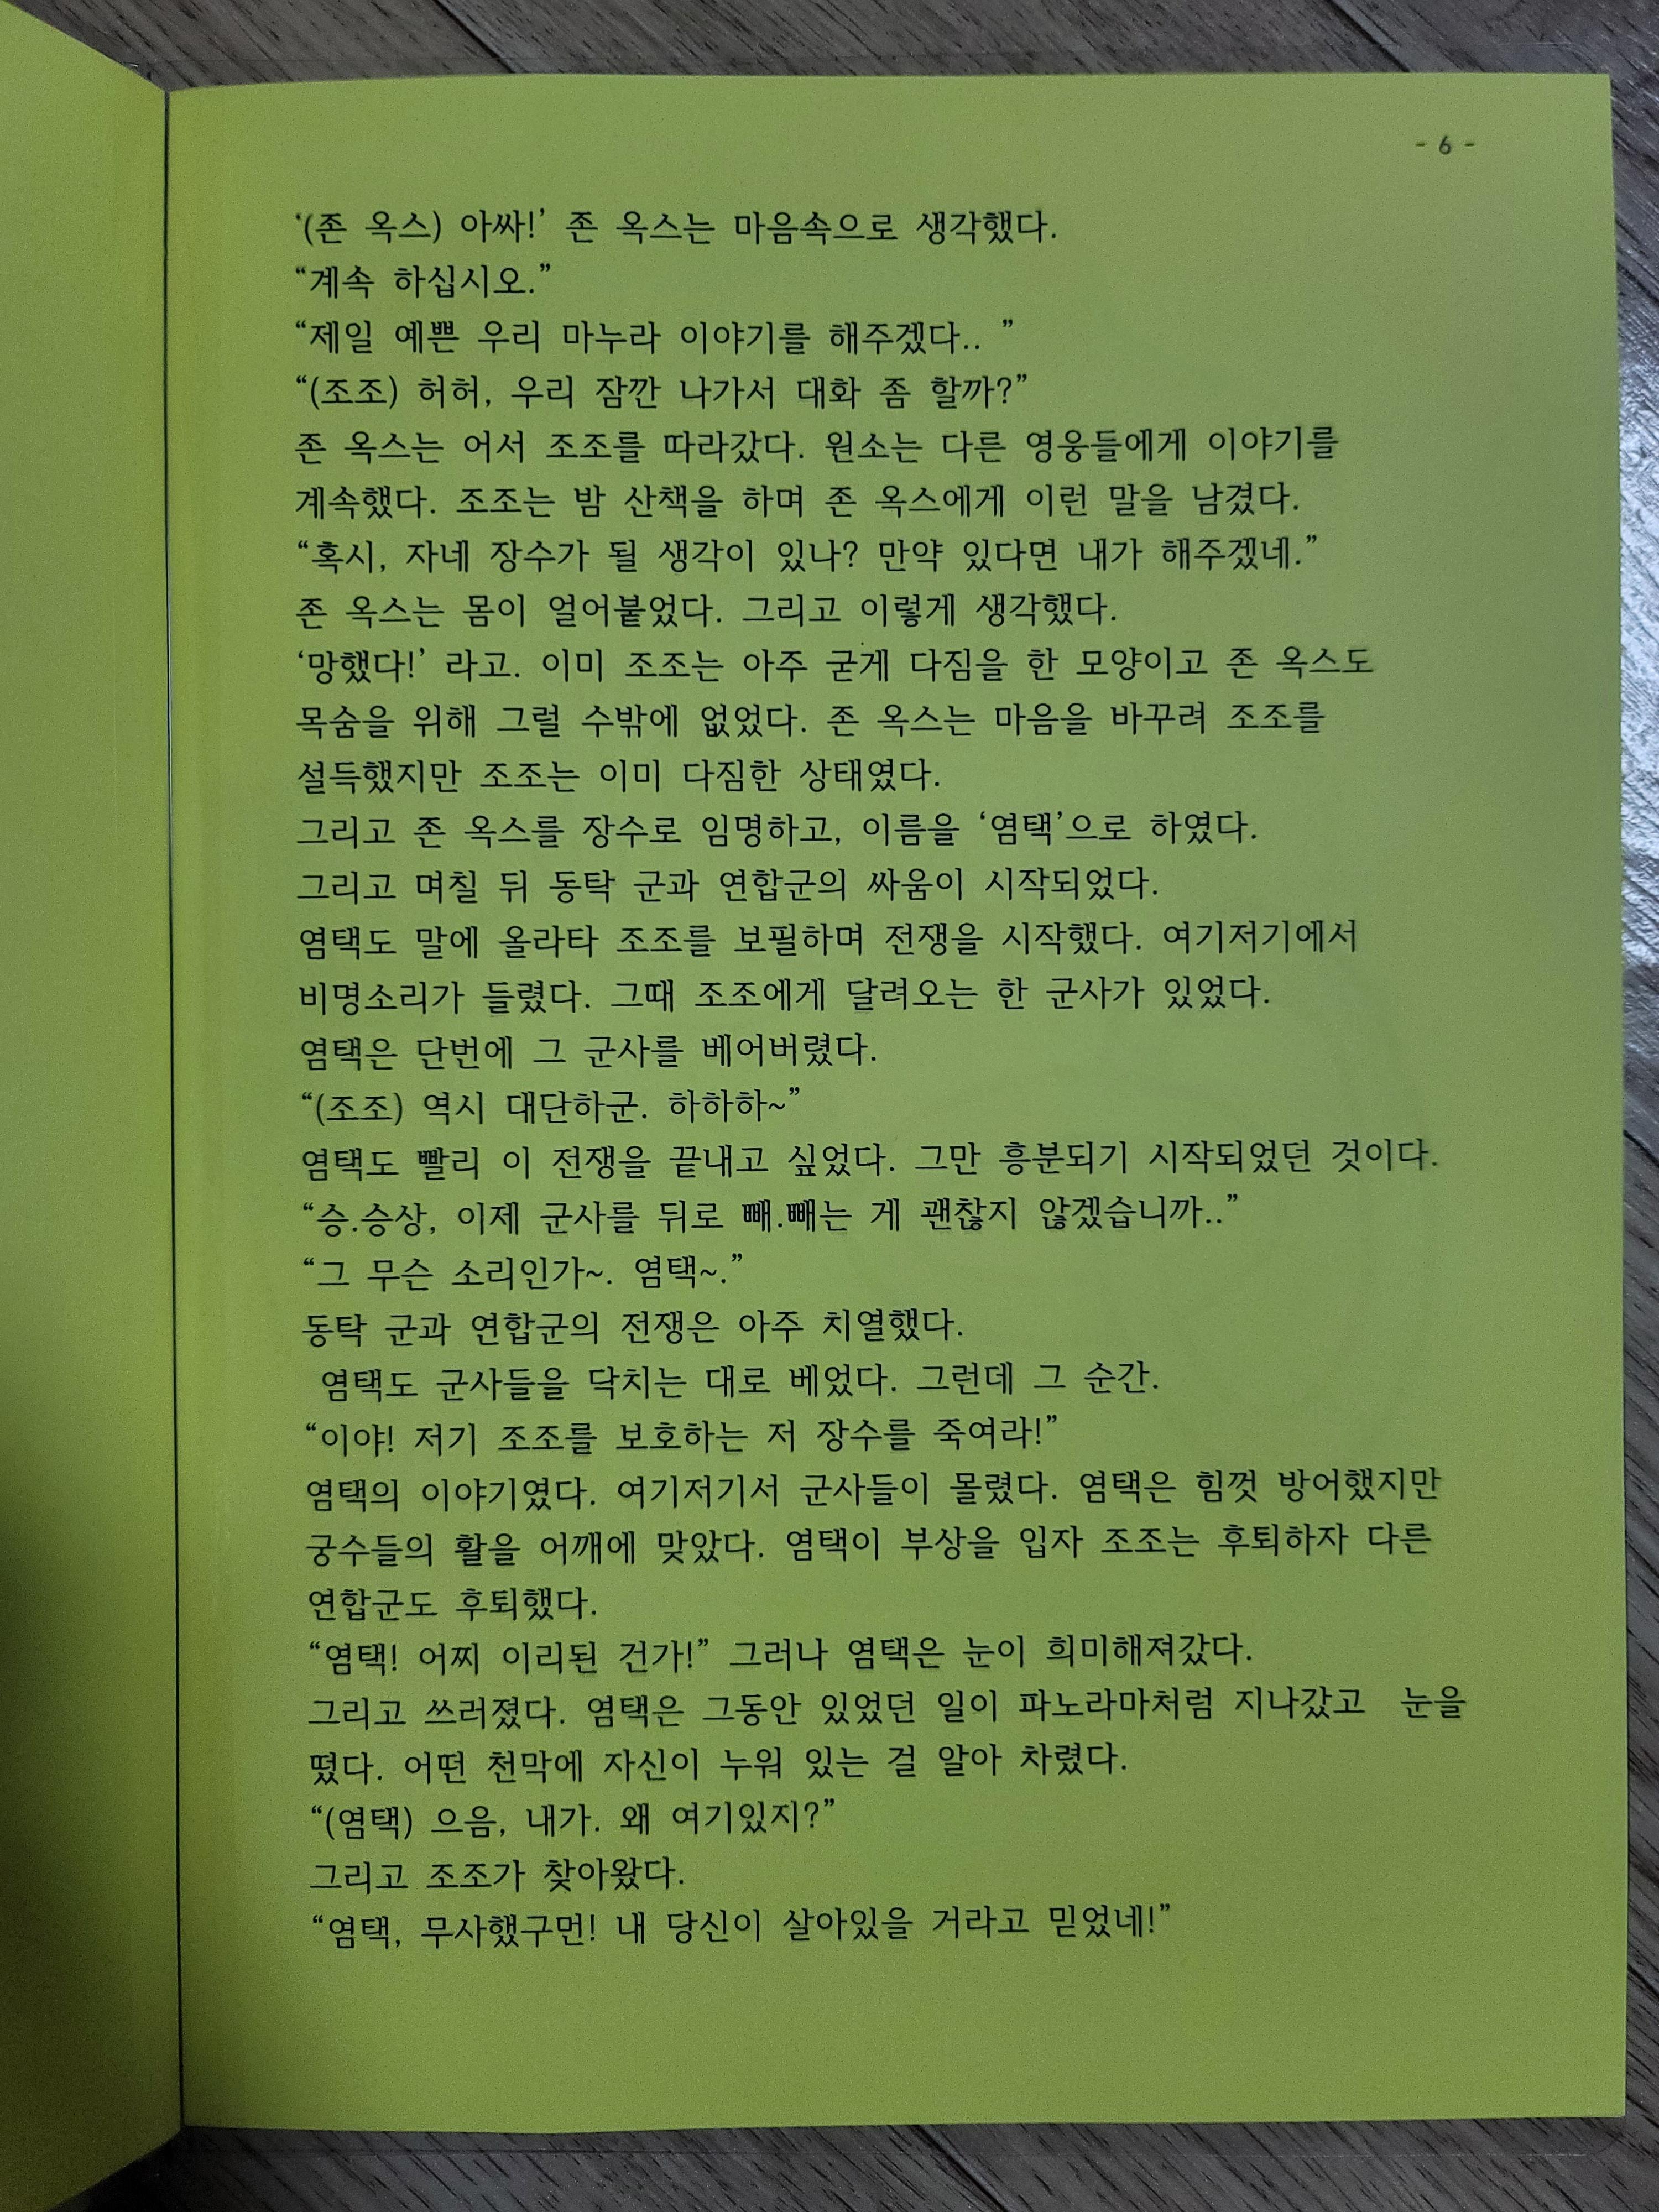 - 6 -
‘(존 옥스) 아싸!’ 존 옥스는 마음속으로 생각했다.
“계속 하십시오.”
“제일 예쁜 우리 마누라 이야기를 해주겠다.. ”
“(조조) 허허, 우리 잠깐 나가서 대화 좀 할까?”
존 옥스는 어서 조조를 따라갔다. 원소는 다른 영웅들에게 이야기를
계속했다. 조조는 밤 산책을 하며 존 옥스에게 이런 말을 남겼다.
“혹시, 자네 장수가 될 생각이 있나? 만약 있다면 내가 해주겠네.”
존 옥스는 몸이 얼어붙었다. 그리고 이렇게 생각했다.
‘망했다!’ 라고. 이미 조조는 아주 굳게 다짐을 한 모양이고 존 옥스도
목숨을 위해 그럴 수밖에 없었다. 존 옥스는 마음을 바꾸려 조조를
설득했지만 조조는 이미 다짐한 상태였다.
그리고 존 옥스를 장수로 임명하고, 이름을 ‘염택’으로 하였다.
그리고 며칠 뒤 동탁 군과 연합군의 싸움이 시작되었다.
염택도 말에 올라타 조조를 보필하며 전쟁을 시작했다. 여기저기에서
비명소리가 들렸다. 그때 조조에게 달려오는 한 군사가 있었다.
염택은 단번에 그 군사를 베어버렸다.
“(조조) 역시 대단하군. 하하하~”
염택도 빨리 이 전쟁을 끝내고 싶었다. 그만 흥분되기 시작되었던 것이다.
“승.승상, 이제 군사를 뒤로 빼.빼는 게 괜찮지 않겠습니까..”
“그 무슨 소리인가~. 염택~.”
동탁 군과 연합군의 전쟁은 아주 치열했다.
염택도 군사들을 닥치는 대로 베었다. 그런데 그 순간.
“이야! 저기 조조를 보호하는 저 장수를 죽여라!”
염택의 이야기였다. 여기저기서 군사들이 몰렸다. 염택은 힘껏 방어했지만
궁수들의 활을 어깨에 맞았다. 염택이 부상을 입자 조조는 후퇴하자 다른
연합군도 후퇴했다.
“염택! 어찌 이리된 건가!” 그러나 염택은 눈이 희미해져갔다.
그리고 쓰러졌다. 염택은 그동안 있었던 일이 파노라마처럼 지나갔고  눈을
떴다. 어떤 천막에 자신이 누워 있는 걸 알아 차렸다.
“(염택) 으음, 내가. 왜 여기있지?”
그리고 조조가 찾아왔다.
“염택, 무사했구먼! 내 당신이 살아있을 거라고 믿었네!”